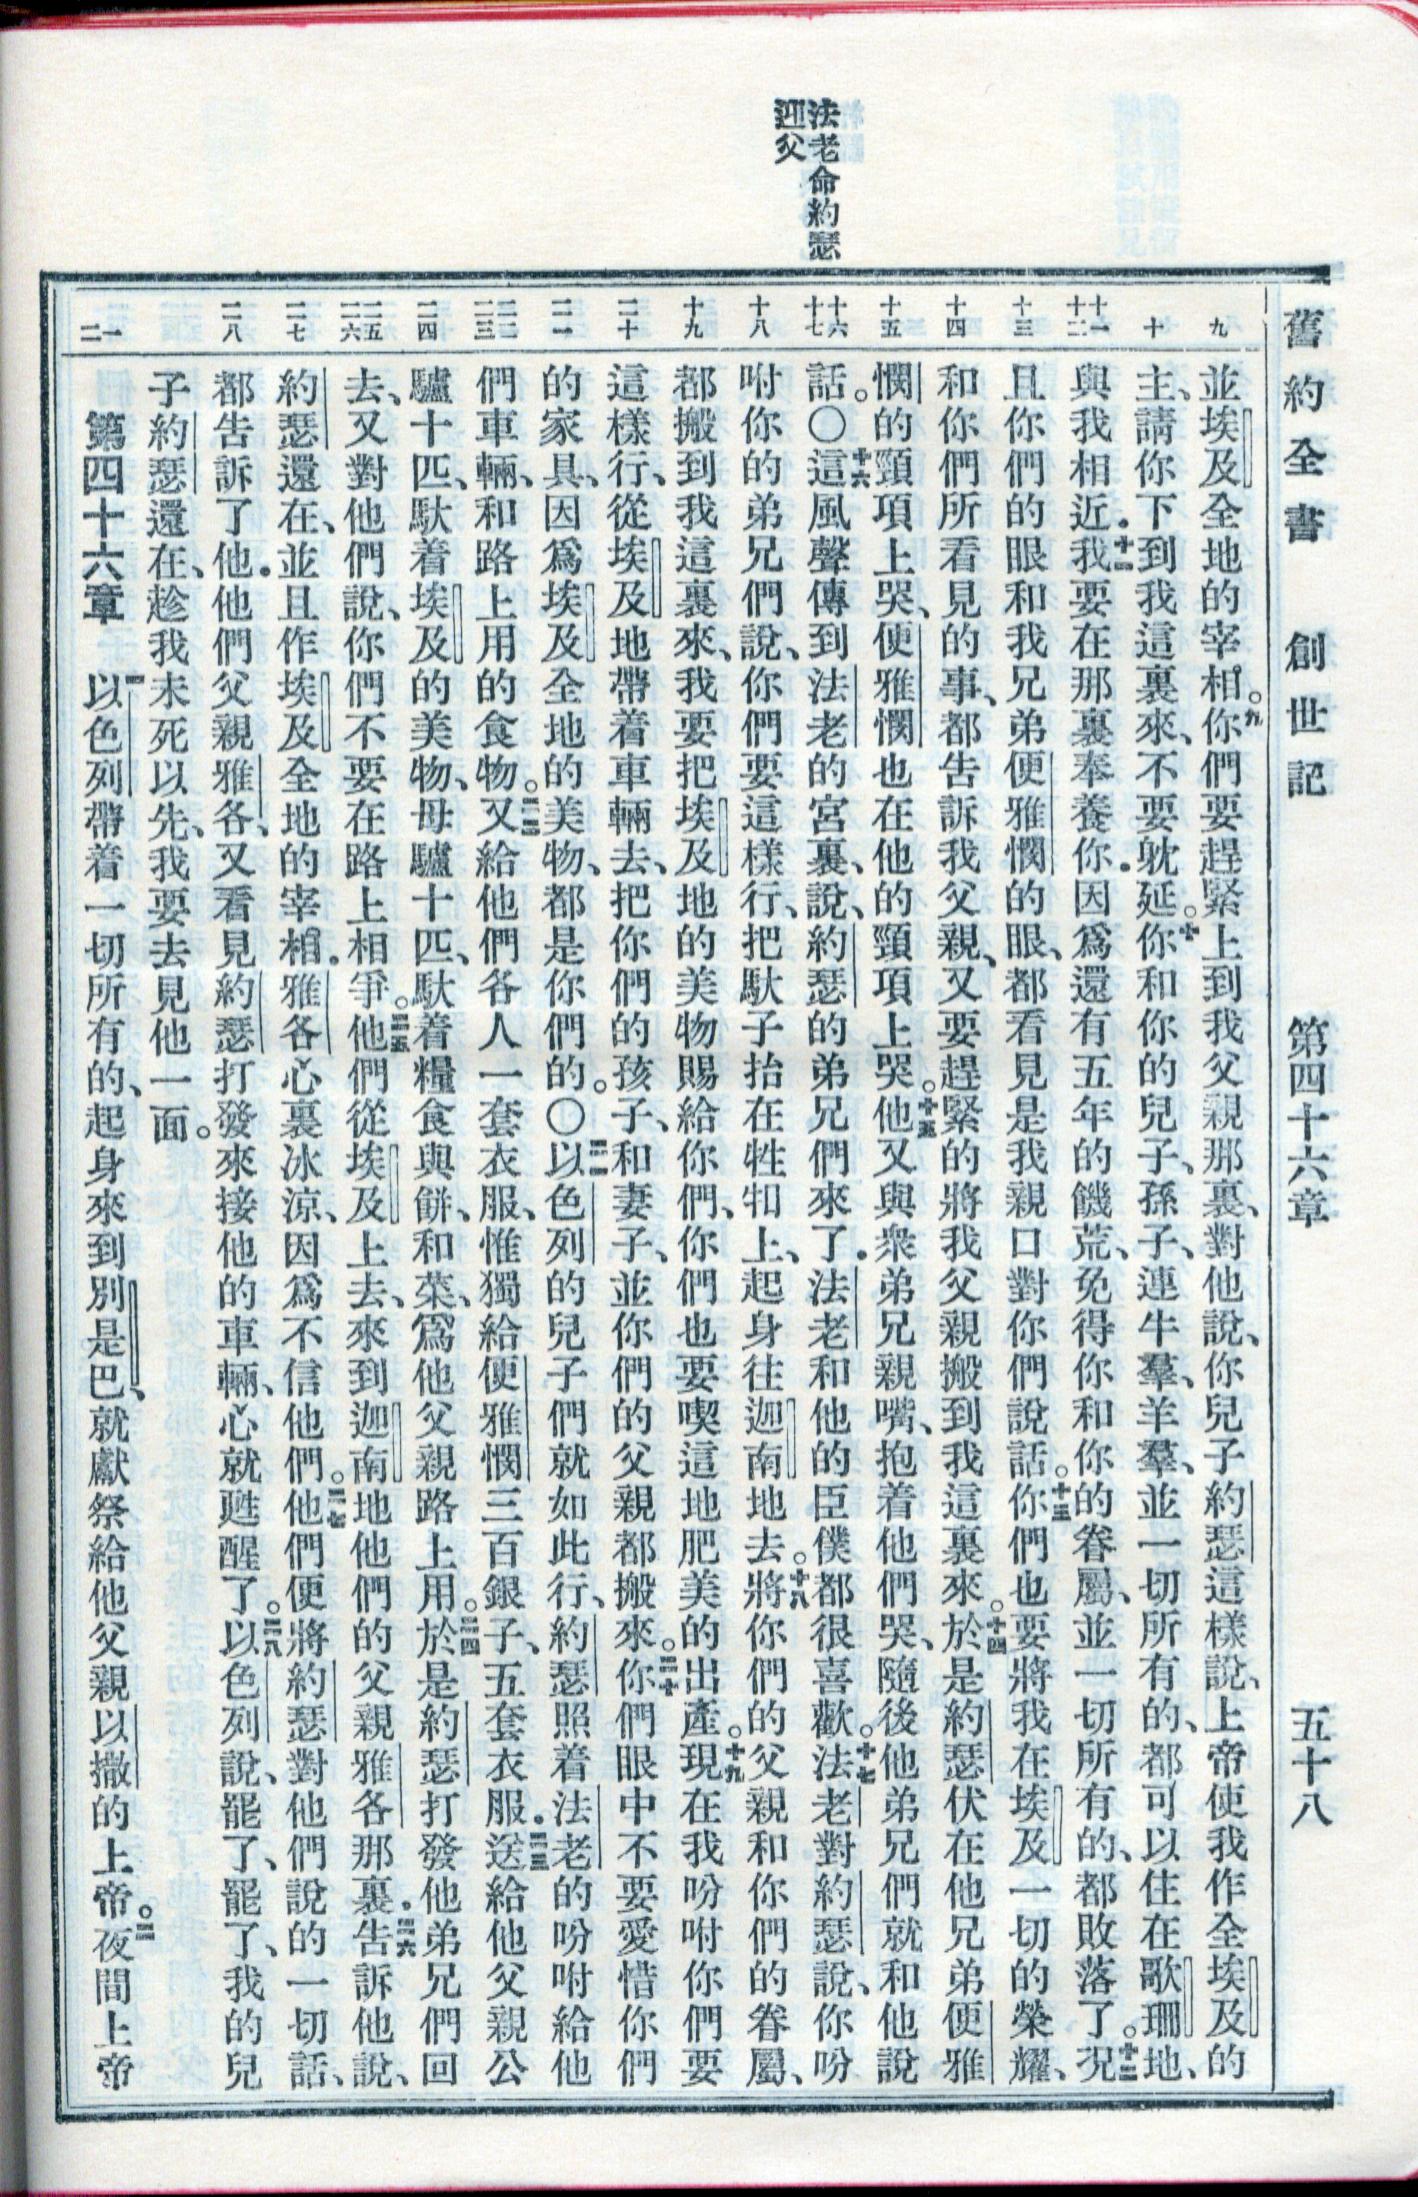 舊約全書 創世記 第四十六章 五十八
法老命約瑟
迎父
九 十 十一 十二 十三 十四 十五 十六 十七 十八 十九 二十 二一 二二 二三 二四 二五 二六 二七 二八 一 二
並埃及全地的宰相。九你們要趕緊上到我父親那裏、對他說、你兒子約瑟這樣說、上帝使我作全埃及的
主、請你下到我這裏來、不要躭延。十你和你的兒子、孫子、連牛羣、羊羣、並一切所有的、都可以住在歌珊地、
與我相近．十一我要在那裏奉養你．因爲還有五年的饑荒、免得你和你的眷屬、並一切所有的、都敗落了。十二況
且你們的眼和我兄弟便雅憫的眼、都看見是我親口對你們說話。十三你們也要將我在埃及一切的榮耀、
和你們所看見的事、都告訴我父親、又要趕緊的將我父親搬到我這裏來。十四於是約瑟伏在他兄弟便雅
憫的頸項上哭、便雅憫也在他的頸項上哭。十五他又與衆弟兄親嘴、抱着他們哭、隨後他弟兄們就和他說
話。〇十六這風聲傳到法老的宮裏、說、約瑟的弟兄們來了．法老和他的臣僕都很喜歡。十七法老對約瑟說、你吩
咐你的弟兄們說、你們要這樣行、把馱子抬在牲口上、起身往迦南地去。十八將你們的父親和你們的眷屬、
都搬到我這裏來、我要把埃及地的美物賜給你們、你們也要喫這地肥美的出產。十九現在我吩咐你們要
這樣行、從埃及地帶着車輛去、把你們的孩子、和妻子、並你們的父親都搬來。二十你們眼中不要愛惜你們
的家具、因爲埃及全地的美物、都是你們的。〇二一以色列的兒子們就如此行、約瑟照着法老的吩咐給他
們車輛、和路上用的食物。二二又給他們各人一套衣服、惟獨給便雅憫三百銀子、五套衣服．二三送給他父親公
驢十匹、馱着埃及的美物、母驢十匹、馱着糧食與餅、和菜、爲他父親路上用。二四於是約瑟打發他弟兄們回
去、又對他們說、你們不要在路上相爭。二五他們從埃及上去、來到迦南地他們的父親雅各那裏．二六告訴他說、
約瑟還在、並且作埃及全地的宰相．雅各心裏冰涼、因爲不信他們。二七他們便將約瑟對他們說的一切話、
都告訴了他．他們父親雅各、又看見約瑟打發來接他的車輛、心就甦醒了。二八以色列說、罷了、罷了、我的兒
子約瑟還在、趁我未死以先、我要去見他一面。
第四十六章 一以色列帶着一切所有的、起身來到別是巴、就獻祭給他父親以撒的上帝。二夜間上帝